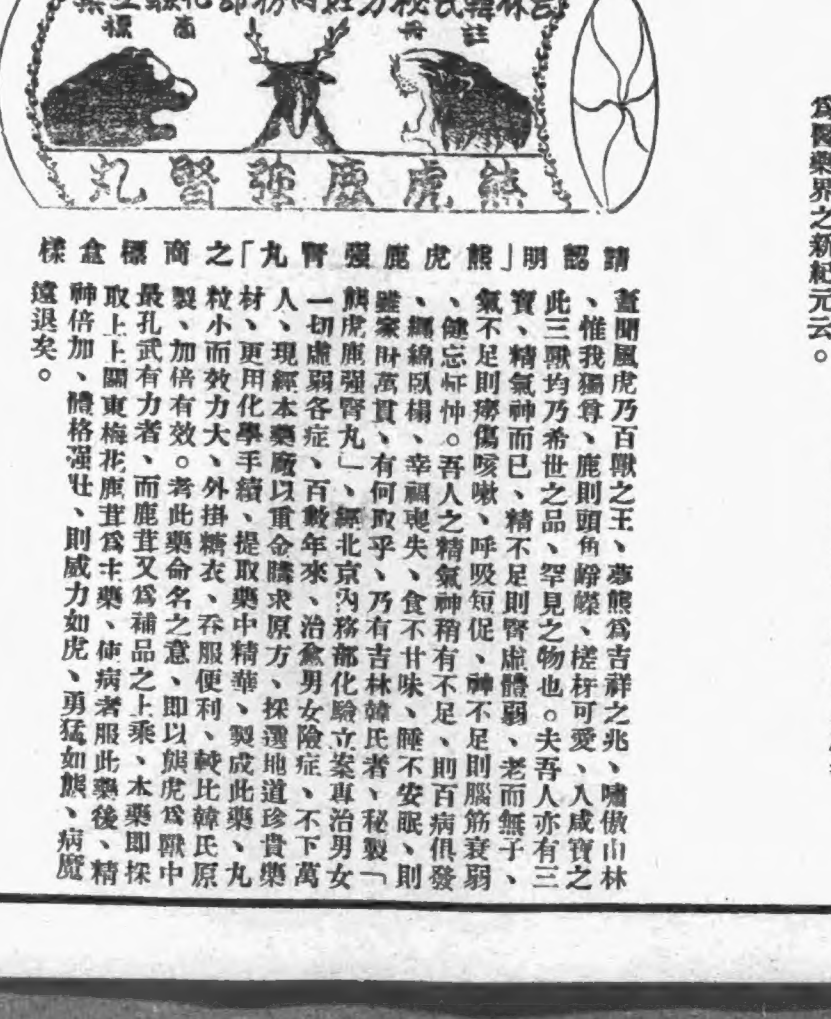 吉林韓氏秘方經內務部化驗立案
註冊
商標
熊虎鹿强腎丸
請認明「熊虎鹿强腎丸」之商標盒樣
蓋聞風虎乃百獸之王、夢熊爲吉祥之兆、嘯傲山林
、惟我獨尊、鹿則頭角崢嶸、槎枒可愛、人咸寶之
此三獸均乃希世之品、罕見之物也。夫吾人亦有三
寶、精氣神而已、精不足則腎虛體弱、老而無子、
氣不足則癆傷咳嗽、呼吸短促、神不足則腦筋衰弱
、健忘怔忡。吾人之精氣神稍有不足、則百病俱發
、纏綿臥榻、幸福喪失、食不甘味、睡不安眠、則
雖家財萬貫、有何取乎、乃有吉林韓氏者、秘製「
熊虎鹿强腎丸」、經北京內務部化驗立案專治男女
一切虛弱各症、百數年來、治愈男女險症、不下萬
人、現經本藥廠以重金購求原方、採選地道珍貴藥
材、更用化學手續、提取藥中精華、製成此藥、丸
粒小而效力大、外掛糖衣、吞服便利、較比韓氏原
製、加倍有效。考此藥命名之意、即以熊虎爲獸中
最孔武有力者、而鹿茸又爲補品之上乘、本藥即採
取上上關東梅花鹿茸爲主藥、使病者服此藥後、精
神倍加、體格强壯、則威力如虎、勇猛如熊、病魔
遠退矣。
爲醫藥界之新紀元云。